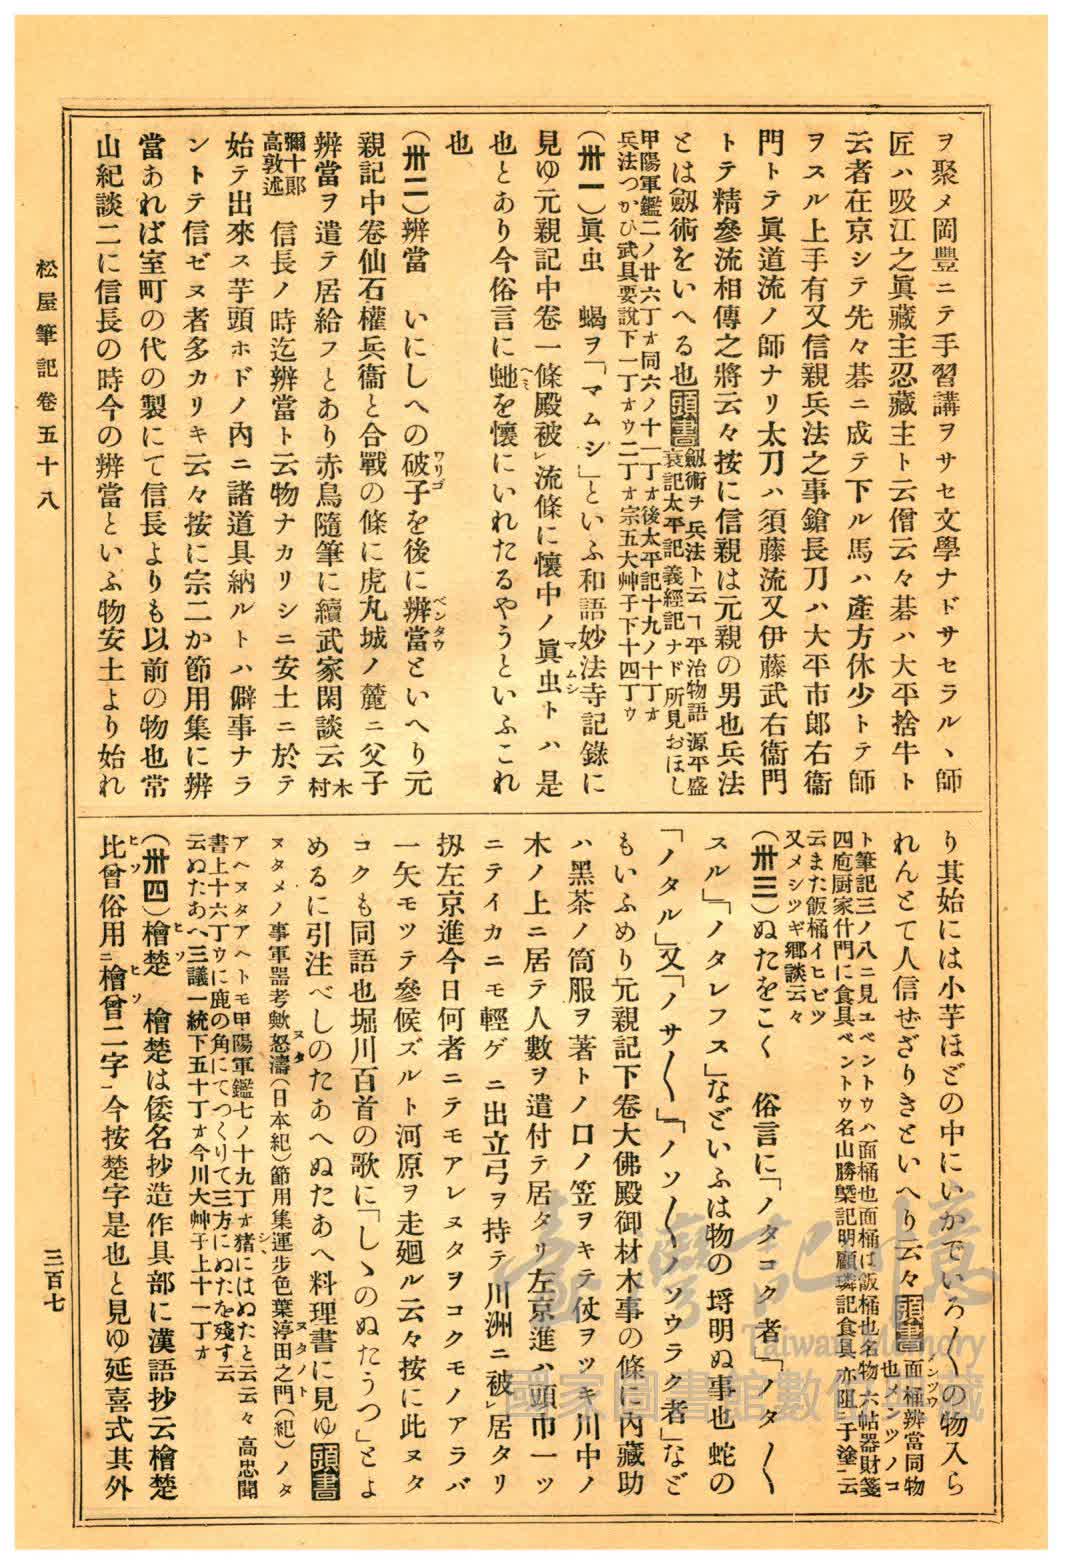 ヲ聚メ岡豐ニテ手習講ヲサセ文學ナドサセラルヽ師
匠ハ吸江之眞藏主忍藏主ト云僧云々碁ハ大平捨牛ト
云者在京シテ先々碁ニ成テ下ル馬ハ產方休少トテ師
ヲスル上手有又信親兵法之事鎗長刀ハ大平市郎右衞
門トテ眞道流ノ師ナリ太刀ハ須藤流又伊藤武右衞門
トテ精參流相傳之將云々按に信親は元親の男也兵法
とは劔術をいへる也頭書劔術ヲ兵法ト云ヿ平治物語源平盛
衰記太平記義經記ナド所見おほし
甲陽軍鑑二ノ廿六丁オ同六ノ十一丁オ後太平記十九ノ十丁オ
兵法つかひ武具要說下一丁オウ二丁オ宗五大艸子下十四丁ウ
(卅一)眞虫 蝎ヲ「マムシ」といふ和語妙法寺記錄に
見ゆ元親記中卷一條殿被レ流條に懷中ノ眞虫マムシトハ是
也とあり今俗言に虵ヘミを懷にいれたるやうといふこれ
也
(卅二)辨當 いにしへの破子ワリゴを後に辨當ベンタウといへり元
親記中卷仙石權兵衞と合戰の條に虎丸城ノ麓ニ父子
辨當ヲ遣テ居給フとあり赤鳥隨筆に續武家閑談云木村
彌十郎高敦述 信長ノ時迄辨當ト云物ナカリシニ安土ニ於テ
始テ出來ス芋頭ホドノ內ニ諸道具納ルトハ僻事ナラ
ントテ信ゼヌ者多カリキ云々按に宗二か節用集に辨
當あれば室町の代の製にて信長よりも以前の物也常
山紀談二に信長の時今の辨當といふ物安土より始れ
り其始には小芋ほどの中にいかでいろ〳〵の物入ら
れんとて人信ぜざりきといへり云々頭書面桶メンツウ辨當同物
也メンツノコ
ト筆記三ノ八ニ見ユベントウハ面桶也面桶は飯桶也名物六帖器財箋
四庖厨家什門に食具ベントウ名山勝槩記明顧璘記食具亦阻于塗云
云また飯桶イヒビツ
又メシツギ鄉談云々
(卅三)ぬたをこく 俗言に「ノタコク者」「ノタ〳〵
スル」「ノタレフス」などいふは物の埒明ぬ事也蛇の
「ノタル」又「ノサ〳〵」「ノソ〳〵ノソウラク者」など
もいふめり元親記下卷大佛殿御材木事の條に內藏助
ハ黑茶ノ筒服ヲ著トノ口ノ笠ヲキテ仗ヲツキ川中ノ
木ノ上ニ居テ人數ヲ遣付テ居タリ左京進ハ頭巾一ッ
ニテイカニモ輕ゲニ出立弓ヲ持テ川洲ニ被レ居タリ
扨左京進今日何者ニテモアレヌタヲコクモノアラバ
一矢モツテ參候ズルト河原ヲ走廻ル云々按に此ヌタ
コクも同語也堀川百首の歌に「しゝのぬたうつ」とよ
めるに引注べしのたあへぬたあへ料理書に見ゆ頭書
ヌタメノ事軍器考歟怒濤ヌタ(日本紀)節用集運步色葉渟田之門ヌタノト(紀)ノタ
アヘヌタアヘトモ甲陽軍鑑七ノ十九丁オ猪シヽにはぬたと云云々高忠聞
書上十六丁ウに鹿の角にてつくりて三方にぬたを殘す云
云ぬたあへ三議一統下五十丁オ今川大艸子上十一丁オ
(卅四)檜楚ヒソ 檜楚は倭名抄造作具部に漢語抄云檜楚
比曾ヒソ俗用ニ檜曾ヒソ二字一今按楚字是也と見ゆ延喜式其外
松屋筆記卷五十八
三百七
臺灣記憶
Taiwan Memory
國家圖書館數位典藏